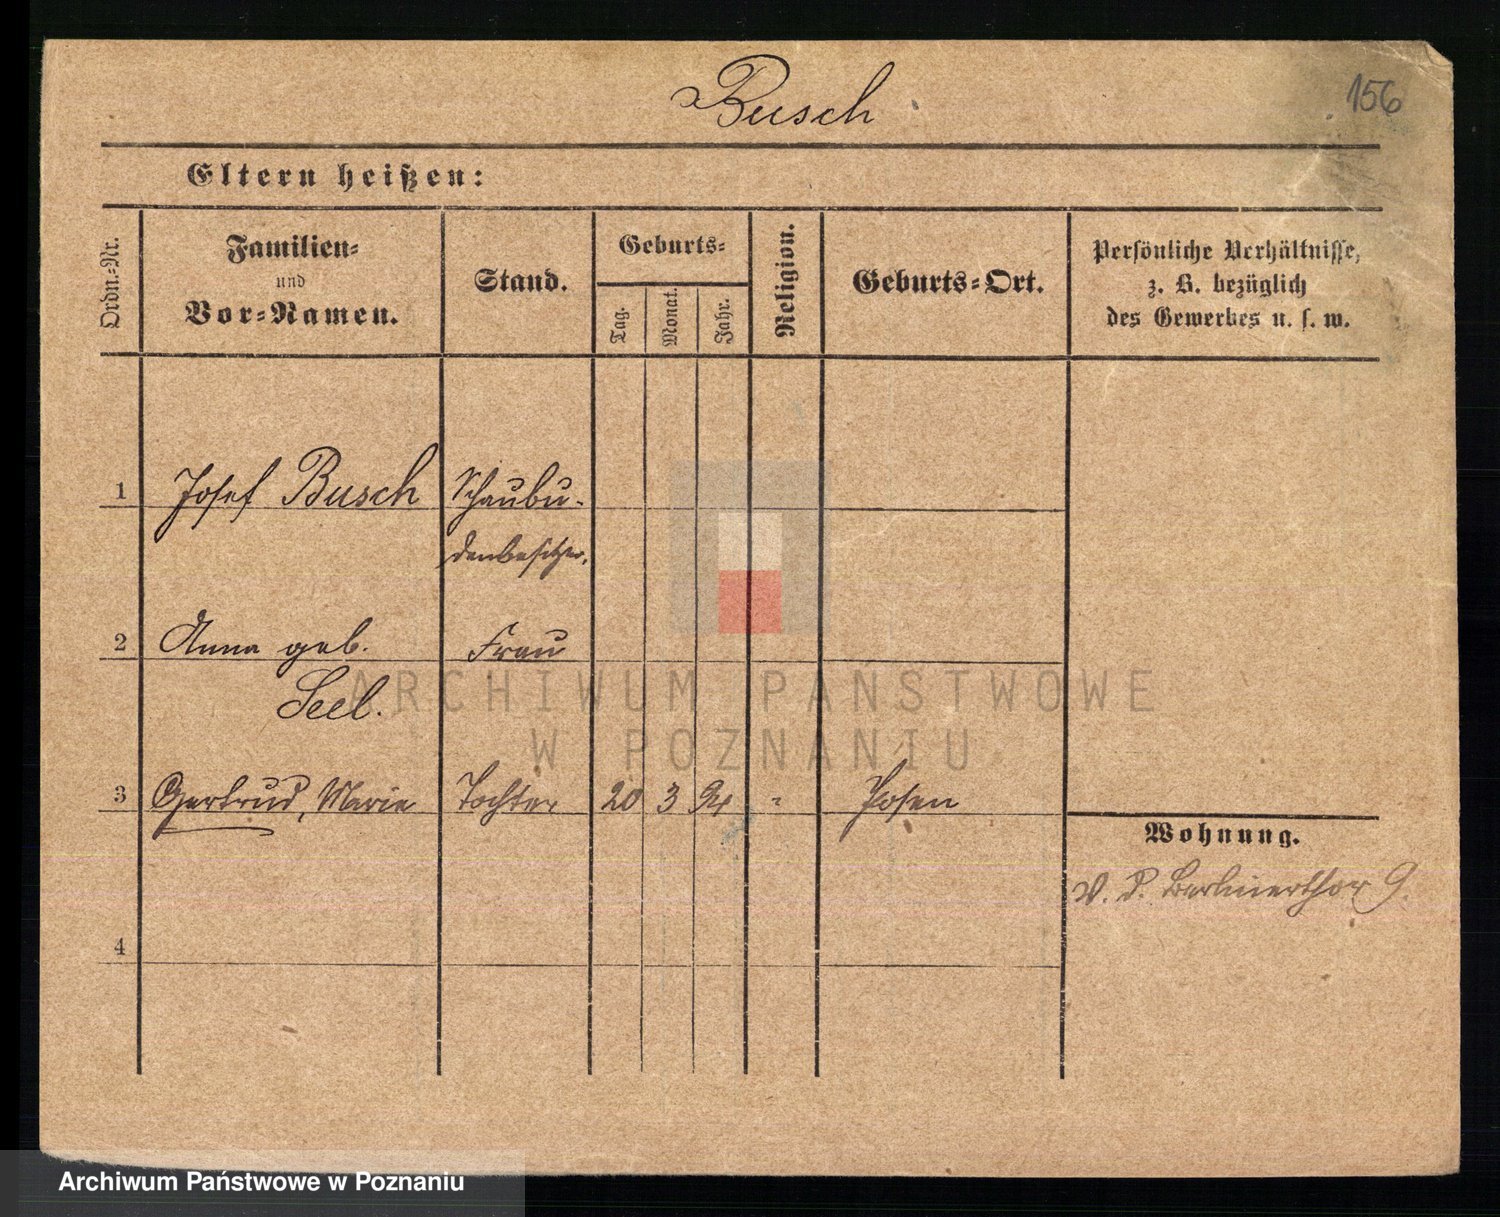 Busch
156
Eltern heißen:
Ordn.-Nr.
Familien-
und
Vor-Namen.
Stand.
Geburts-
Tag.
Monat.
Jahr.
Religion.
Geburts-Ort.
Persönliche Verhältnisse,
z. B. bezüglich
des Gewerbes u. s. w.
1 Josef Busch Schaubu-
denbesitzer.
2 Anna geb. Frau
Seel.
3 Gertrud, Marie Tochter 20 3 94 " Posen
Wohnung.
V. d. Berlinerthor 9.
4
ARCHIWUM PAŃSTWOWE
W POZNANIU
Archiwum Państwowe w Poznaniu